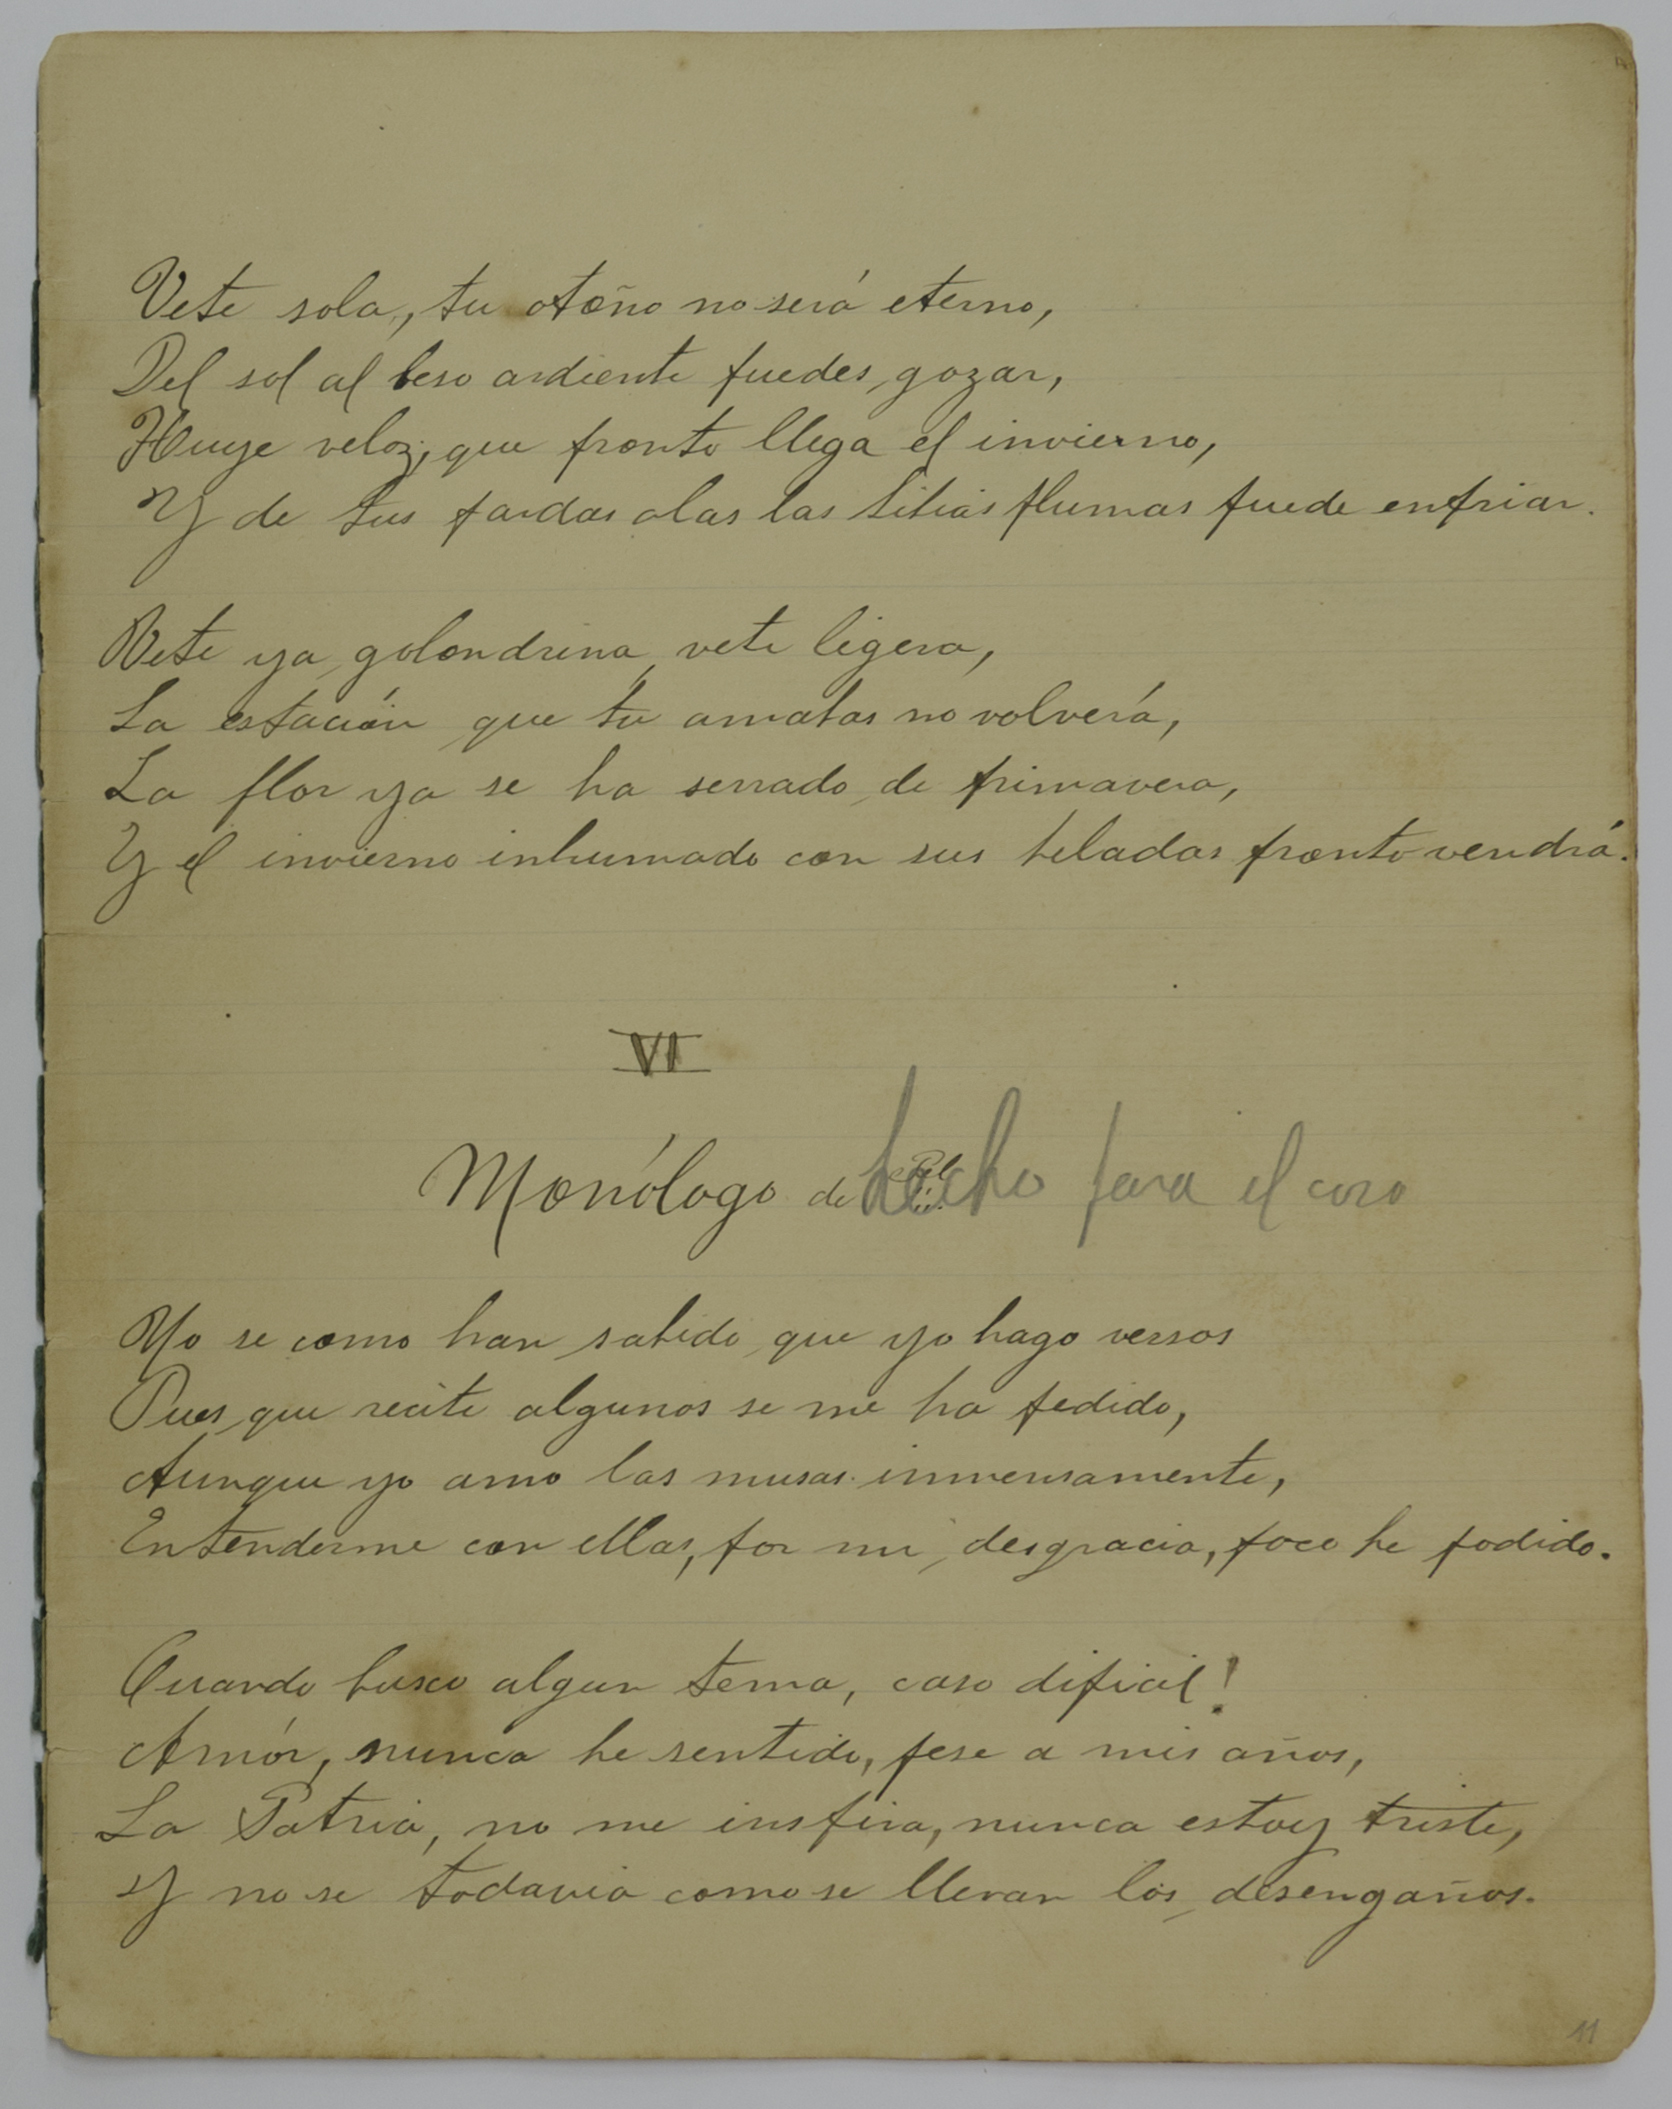 Vete sola, tu otoño no será eterno,
Del sol al beso ardiente puedes gozar,
Huye veloz, que pronto llega el invierno,
Y de tus pardas alas las tibias plumas puede enfriar.
Vete ya golondrina, vete ligera,
La estación que tu amabas no volverá,
La flor ya se ha serrado de primavera,
Y el invierno inhumado con sus heladas pronto vendrá.
VI
Monólogo de hecho para el coro
Yo se como han sabido que yo hago versos
Pues que recite algunos se me ha pedido,
Aunque yo amo las musas inmensamente,
Entenderme con ellas, por mi desgracia, poco he podido.
Cuando busco algun tema, caso dificil!
Amór, nunca he sentido, pese a mis años,
La Patria, no me inspira, nunca estoy triste,
Y no se todavia como se llevan los desengaños.
11